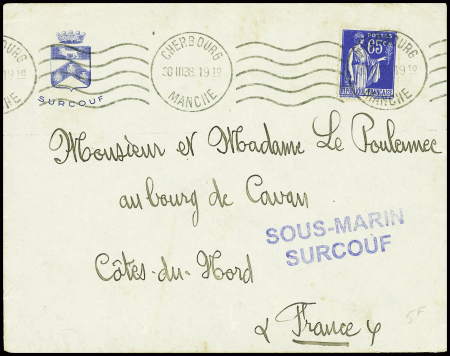 CHERBOURG
30 III 38. 19 10
MANCHE
POSTES
65c
SURCOUF
Monsieur et Madame Le Poulennec
au bourg de Cavan
SOUS-MARIN
SURCOUF
Côtes-du-Nord
France
5F